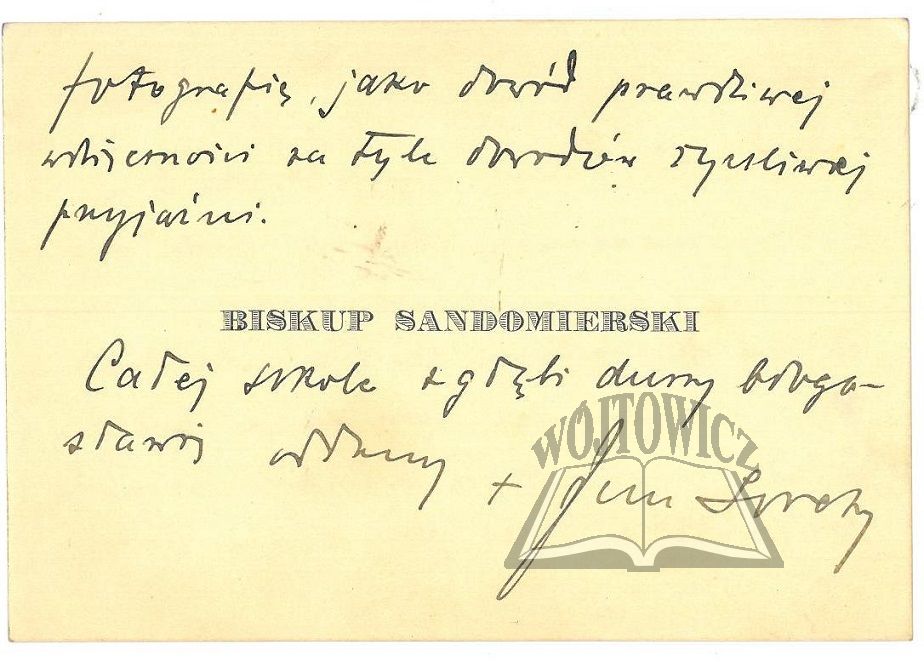 fotografię, jako dowód prawdziwej
wdzięczności za tyle dowodów życzliwej
przyjaźni.
BISKUP SANDOMIERSKI
Całej szkole z głębi duszy błogo-
sławię oddany + Jan Lorek
WÓJTOWICZ